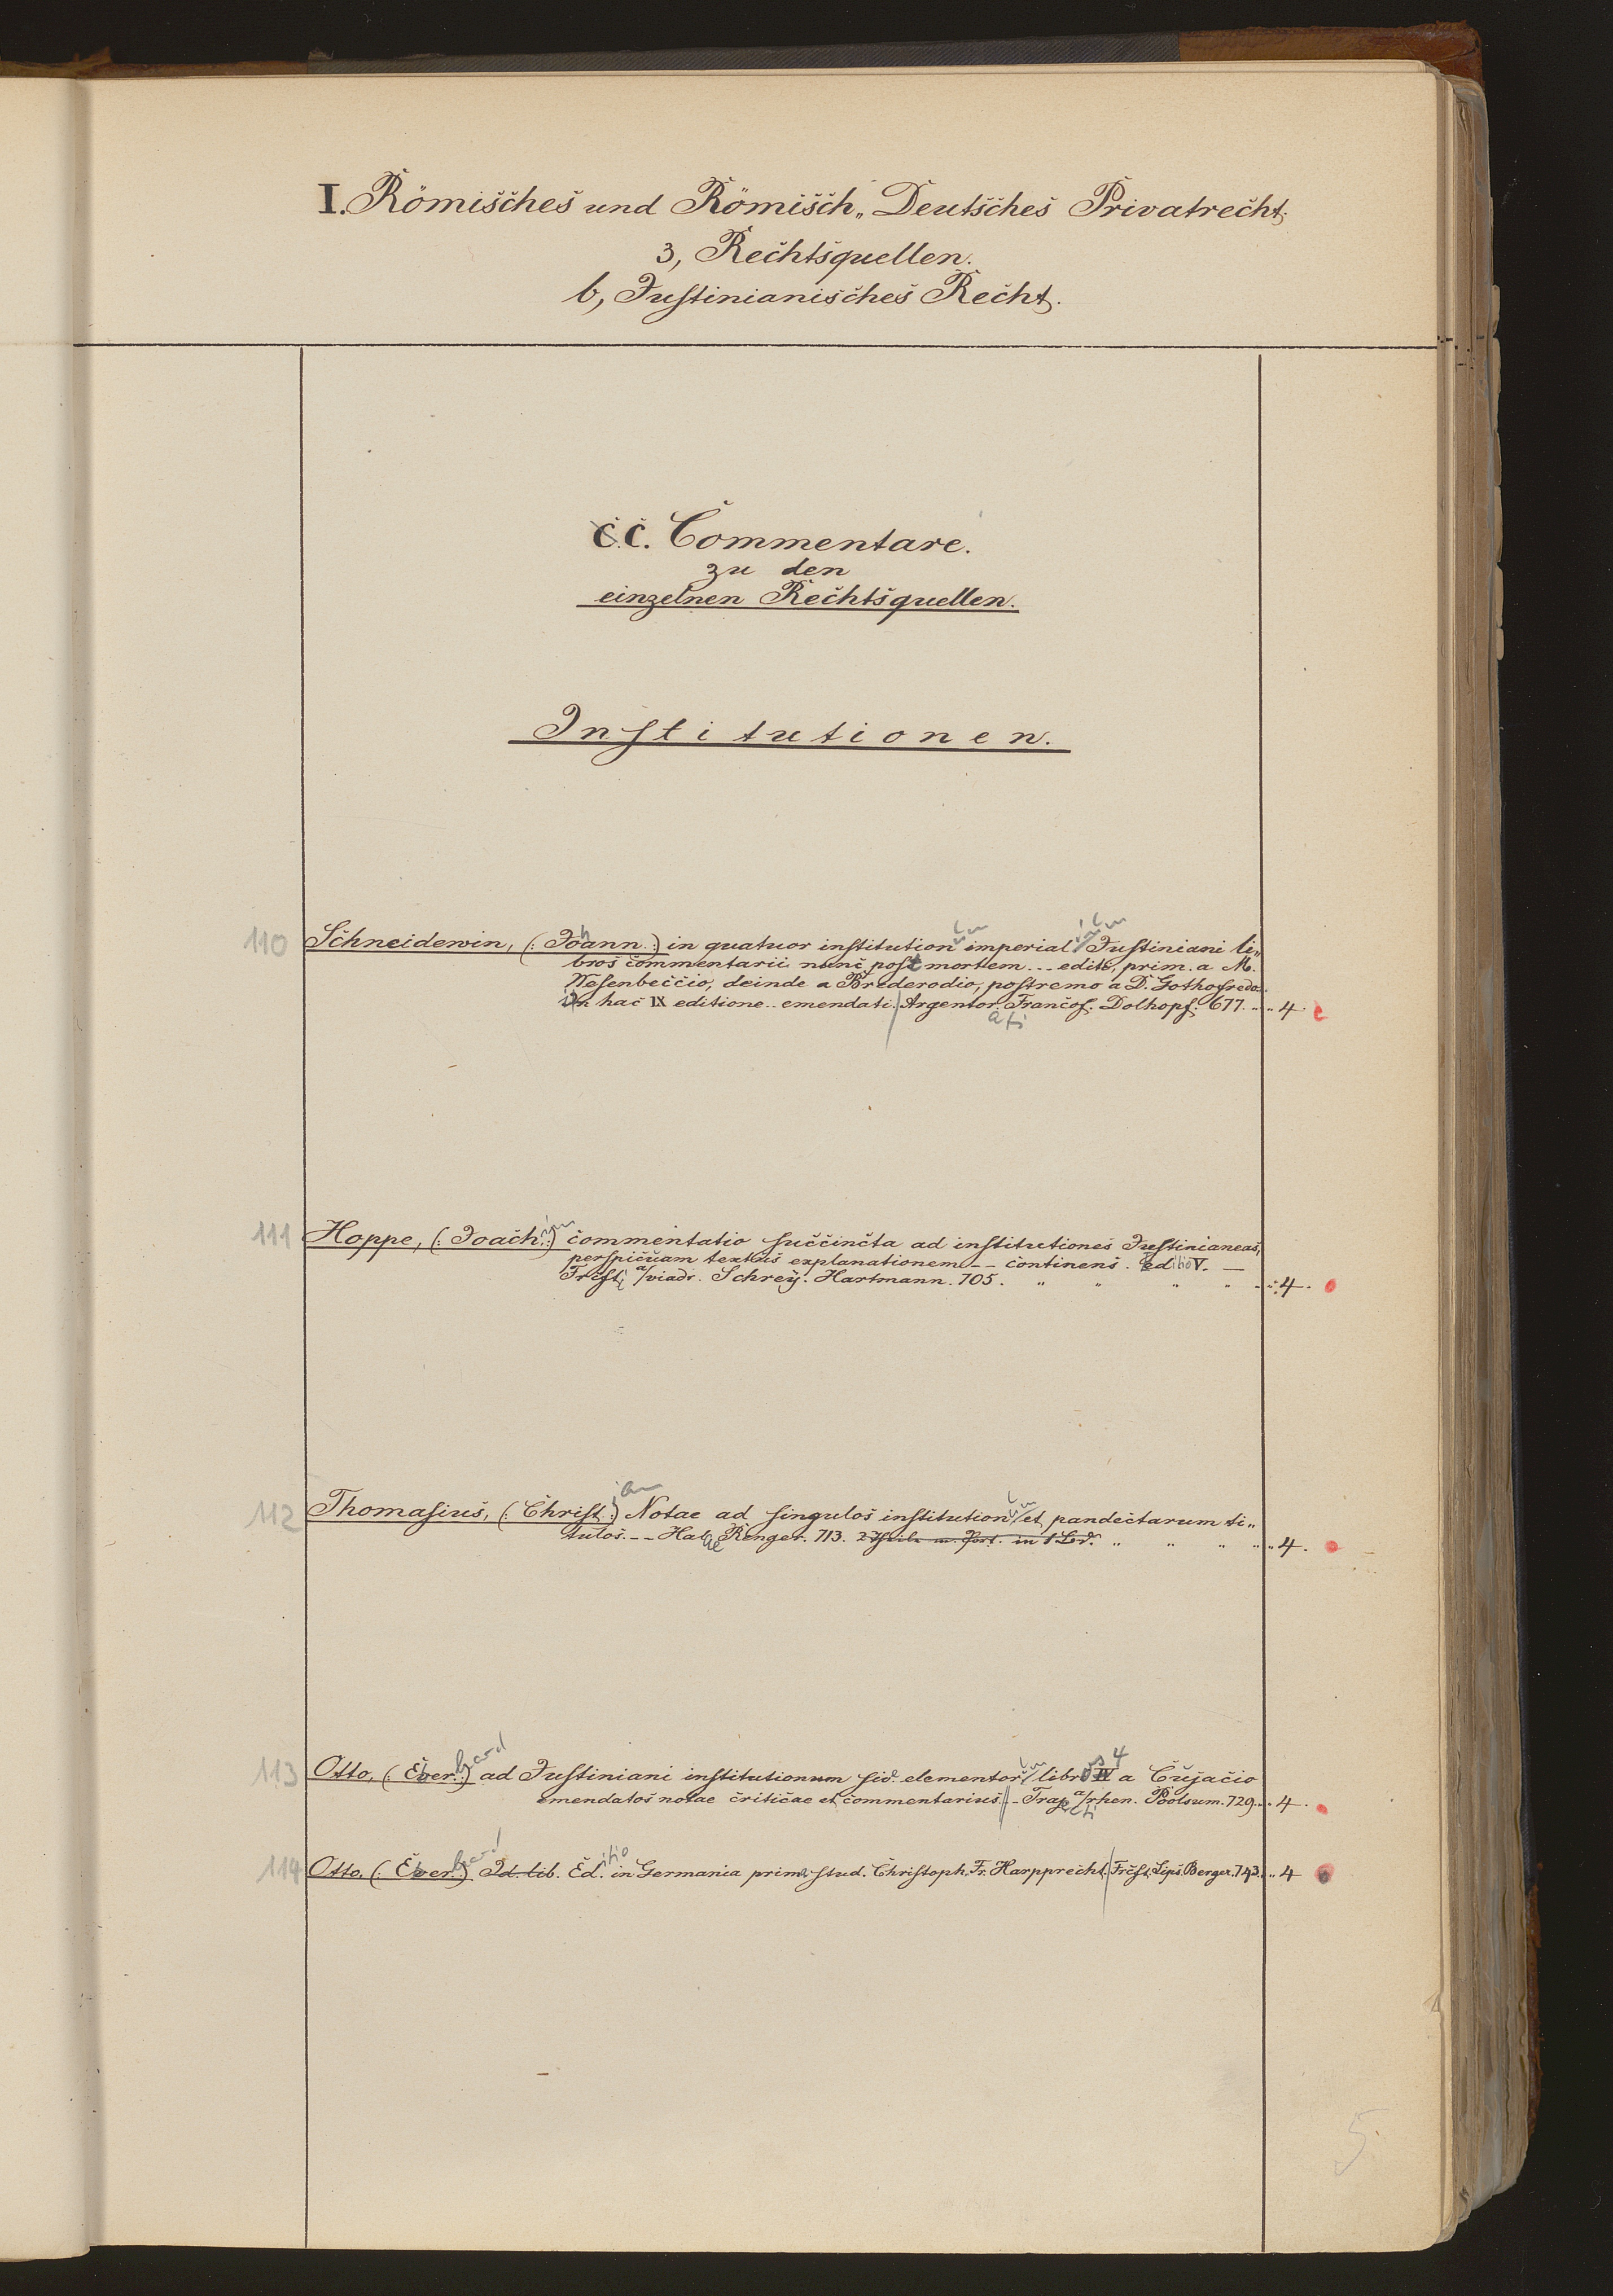 I. Römisches und Römisch„ Deutsches Privatrecht.
3, Rechtsquellen.
b, Justinianisches Recht.
C.C. Commentare.
zu den
einzelnen Rechtsquellen.
Institutionen.
110 Schneidewin, (: Johann :) in quatuor institutionum imperialium Justiniani li„
bros commentarii nunc post mortem... editi, prim. a M.
Wesenbeccio, deinde a Brederodio, postremo a D. Gothofredo.
in hac IX editione.. emendati. Argentorati Francof. Dolhopf. 677. .. .. 4.
111 Hoppe, (: Joachim :) commentatio succincta ad institutiones Justinianeas,
perspicuam textus explanationem -- continens. editio V. —
Frcft. a/viadr. Schrey. Hartmann. 705. „ „ „ „ .. 4.
112 Thomasius, (: Christian :) Notae ad singulos institutionum et pandectarum ti„
tulos. -- Halae Renger. 713. „ „ „ .. .. 4.
113 Otto, (: Eberhard :) ad Justiniani institutionum sid. elementorum libros 4 a Cujacio
emendatos notae criticae et commentarius. - Traj. a/rhen. Poolsum. 729. .. 4.
114 Otto, (: Eberhard :) Id. lib. Editio in Germania prima stud. Christoph. Fr. Harpprecht. Frcft. Lips. Berger. 743. .. 4
5.